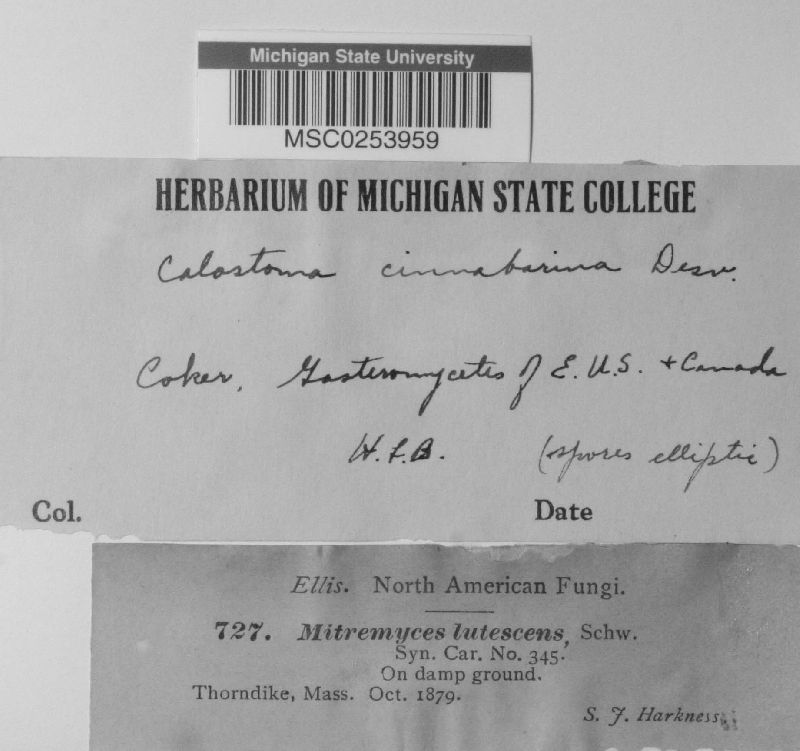 Michigan State University
MSC0253959
HERBARIUM OF MICHIGAN STATE COLLEGE
Calostoma cinnabarina Desv.
Coker, Gasteromycetes of E. U.S. + Canada
H.L.B. (spores elliptic)
Col. Date
Ellis. North American Fungi.
727. Mitremyces lutescens, Schw.
Syn. Car. No. 345.
On damp ground.
Thorndike, Mass. Oct. 1879.
S. J. Harkness.